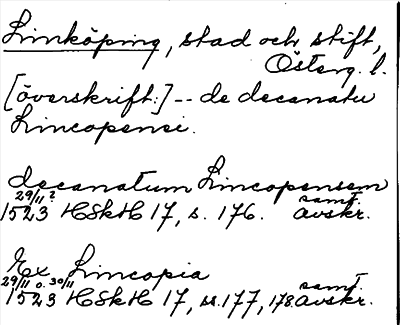 Linköping, stad och stift,
Österg. l.
[överskrift:] -- de decanatu
Lincopensi.
decanatum Lincopensem
29/11 ?
1523 HSkH 17, s. 176. samt. avskr.
Ex Lincopia
29/11 o. 30/11
1523 HSkH 17, ss. 177, 178. samt. avskr.